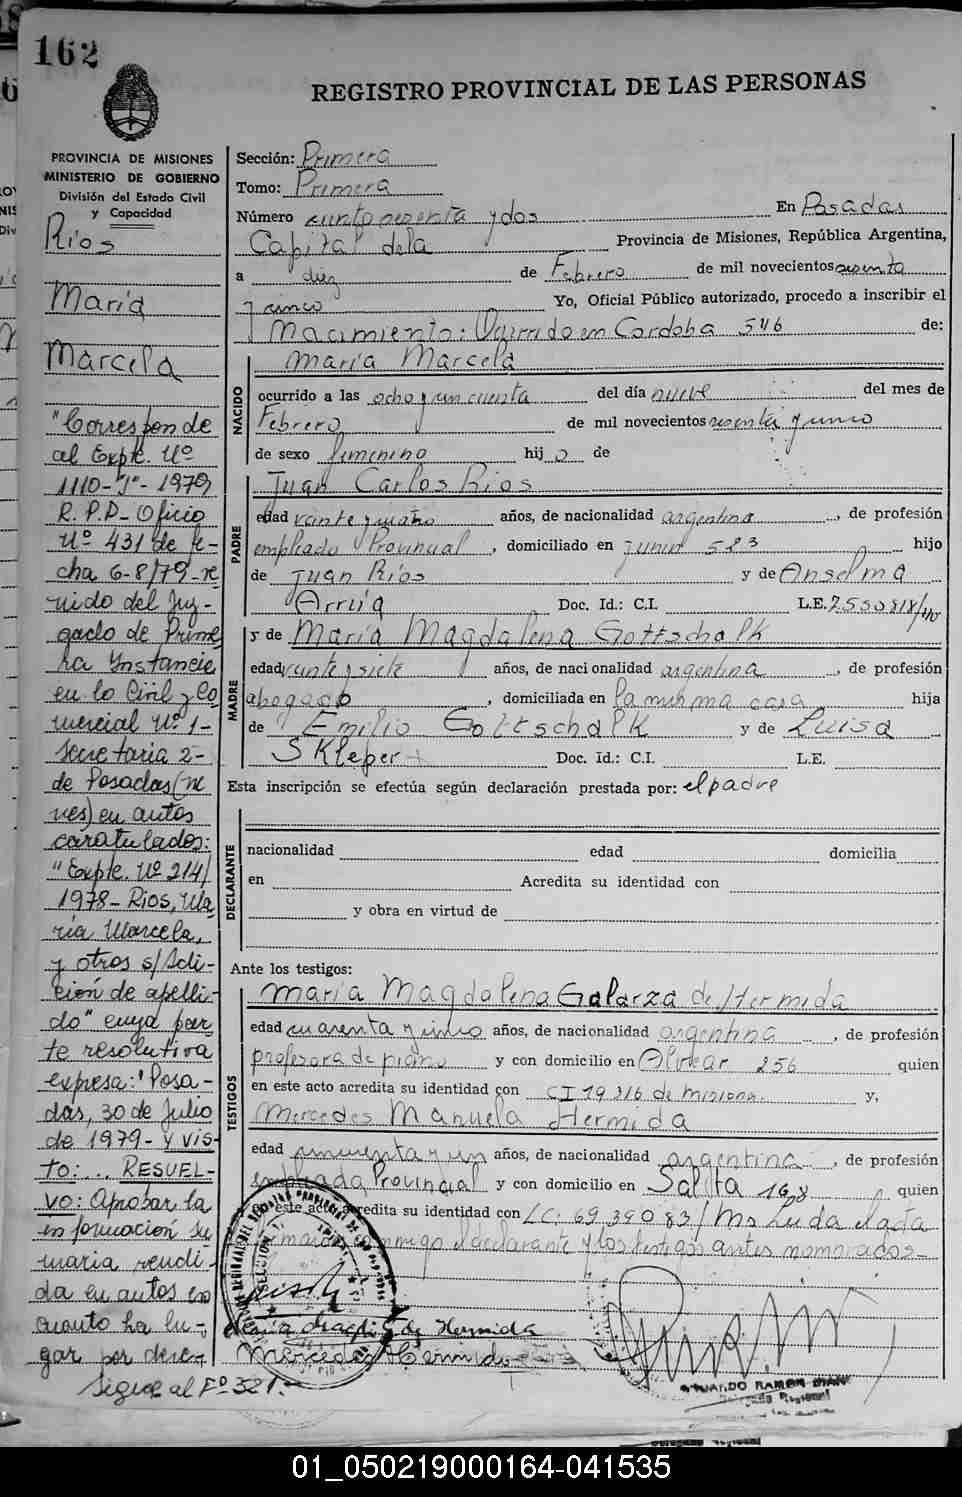 162
REGISTRO PROVINCIAL DE LAS PERSONAS
PROVINCIA DE MISIONES
MINISTERIO DE GOBIERNO
División del Estado Civil
y Capacidad
Ríos
María
Marcela
"Correspon de
al Expte. Nº
1110-"J"-1979
R.P.P- Oficio
Nº 431 de fe-
cha 6-8/79-re
nido del Juz-
gado de Prime
ra Instancia
en lo Civil y Co
mercial Nº 1-
Secretaria 2-
de Posadas (M
nes) en autos
caratulados:
"Expte. Nº 214/
1978- Rios, Ma
ría Marcela,
y otros s/Adi-
ción de apelli-
do" cuya par
te resolutiva
expresa: "Posa-
das, 30 de Julio
de 1979- y vis-
to: ... RESUEL-
VO: Aprobar la
información su
maria rendi-
da en autos en
cuanto ha lu-
gar por dere-
Sigue al Fº 321.-
Sección: Primera
Tomo: Primera
Número ciento sesenta y dos En Posadas
Capital de la Provincia de Misiones, República Argentina,
a diez de Febrero de mil novecientos sesenta
y cinco Yo, Oficial Público autorizado, procedo a inscribir el
Nacimiento: Ocurrido en Cordoba 546 de:
María Marcela
NACIDO
ocurrido a las ocho y cincuenta del día nueve del mes de
Febrero de mil novecientos sesenta y cinco
de sexo femenino hij a de
Juan Carlos Rios
PADRE
edad veinte y cuatro años, de nacionalidad argentina, de profesión
empleado Provincial, domiciliado en Junin 583 hijo
de Juan Ríos y de Anselma
Arrúa Doc. Id.: C.I. L.E. 7.550818/
MADRE
y de María Magdalena Gottschalk
edad veinte y siete años, de nacionalidad argentina, de profesión
abogado, domiciliada en la misma casa hija
de Emilio Gottschalk y de Luisa
Skleper Doc. Id.: C.I. L.E.
Esta inscripción se efectúa según declaración prestada por: el padre
DECLARANTE
nacionalidad edad domicilia
en Acredita su identidad con
y obra en virtud de
Ante los testigos:
TESTIGOS
María Magdalena Galarza de Hermida
edad cuarenta y cinco años, de nacionalidad argentina, de profesión
profesora de piano y con domicilio en Alvear 256 quien
en este acto acredita su identidad con CI 19.216 de misiones. y,
Mercedes Manuela Hermida
edad cincuenta y un años, de nacionalidad argentina, de profesión
empleada Provincial y con domicilio en Salta 1698 quien
este acto acredita su identidad con LC. 69.39083/Mns Leida el acta
conmigo el declarante y los testigos antes nombrados-
Maria Magdalena G de Hermida
Mercedes Hermida
EDUARDO RAMON
Delegado Regional
01_050219000164-041535